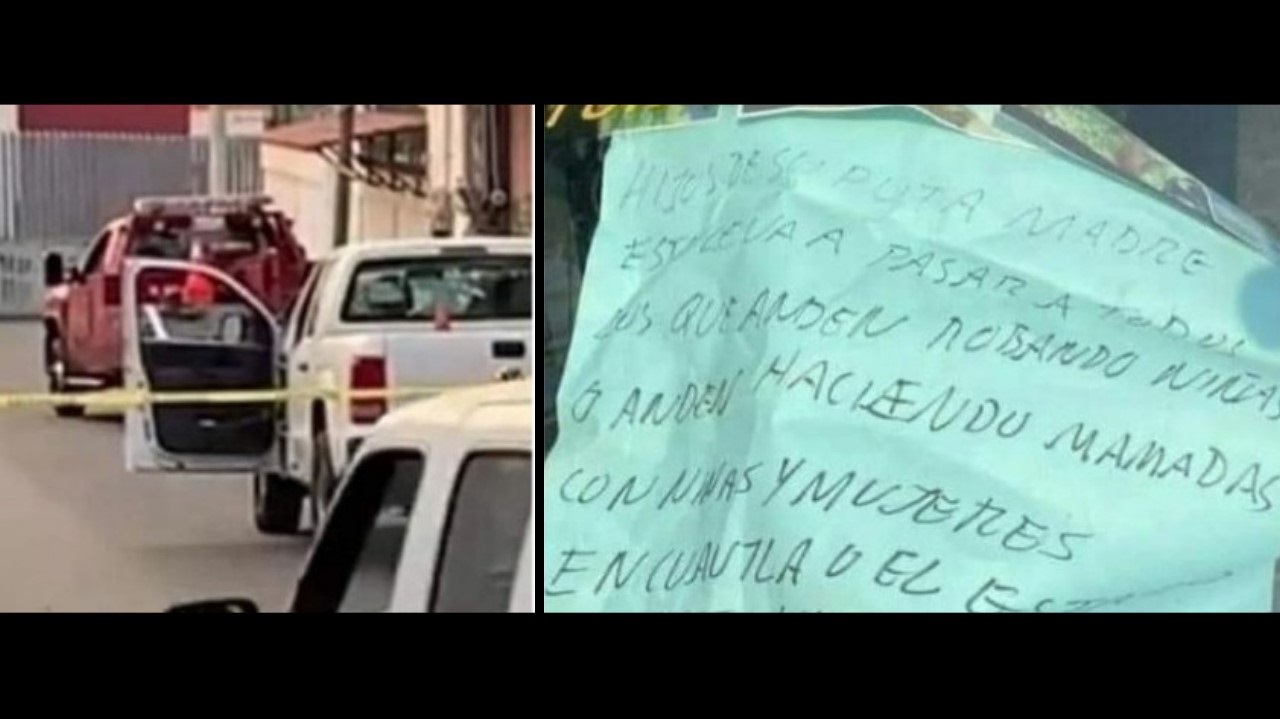 HIJOS DE SU PUTA MADRE
ESTO LE VA A PASAR A TODOS
LOS QUE ANDEN ROBANDO NIÑAS
O ANDEN HACIENDO MAMADAS
CON NIÑAS Y MUJERES
EN CUAUTLA O EL